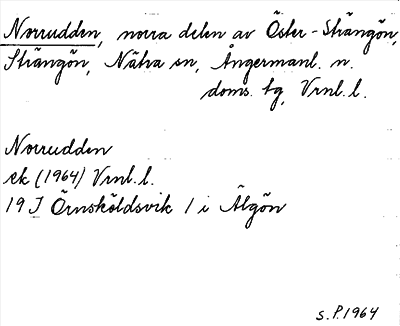 Norrudden, norra delen av Öster-Strängön,
Strängön, Nätra sn, Ångermanl. n.
doms. tg, Vrnl. l.
Norrudden
ek (1964) Vrnl. l.
19 J Örnsköldsvik 1 i Älgön
S.P. 1964